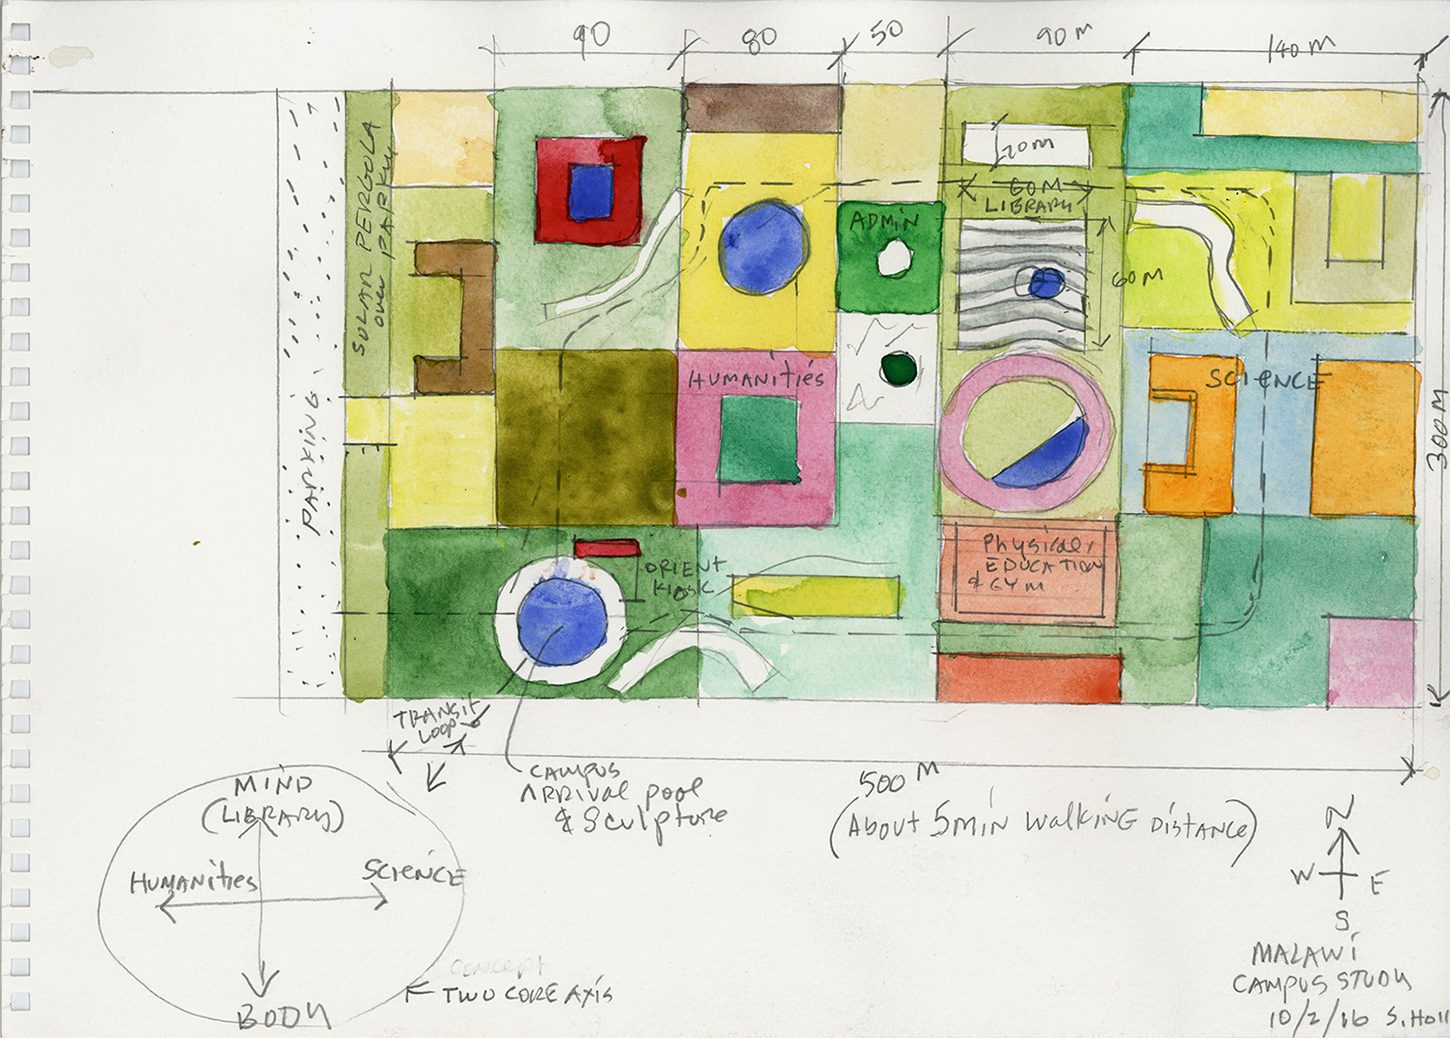 90
80
50
90 M
140 M
20M
60M
LIBRARY
ADMIN
60M
SOLAR PERGOLA
over PARKING
HUMANITIES
SCIENCE
300M
PARKING
Physical
EDUCATION
& GYM
ORIENT
KIOSK
TRANSIT
LOOP
CAMPUS
ARRIVAL pool
& Sculpture
500 M
(About 5min walking DISTANCE)
MIND
(LIBRARY)
HUMANITIES
SCIENCE
BODY
concept
TWO CORE AXIS
N
W E
S
MALAWI
CAMPUS STUDY
10/2/16 S. Holl